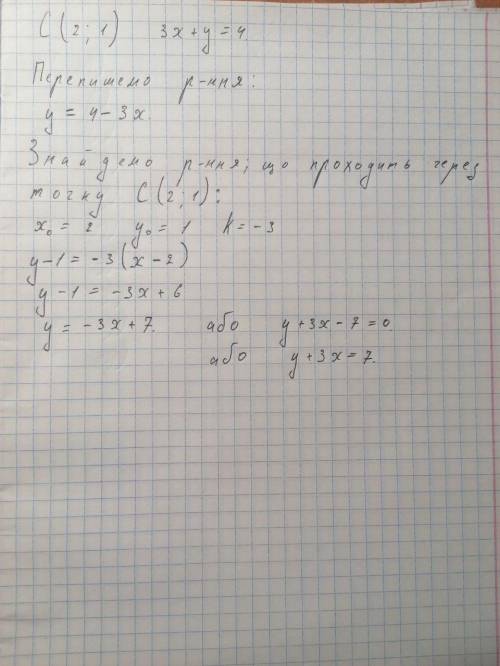 C (2; 1) 3x + y = 4
Перепишемо р-ння:
y = 4 - 3x.
Знайдемо р-ння; що проходить через
точку C (2; 1):
x₀ = 2 y₀ = 1 k = -3
y - 1 = -3 (x - 2)
y - 1 = -3x + 6
y = -3x + 7. або y + 3x - 7 = 0
або y + 3x = 7.